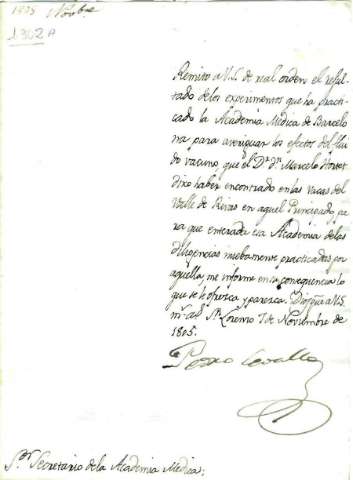 1805 Nobbre
1302 A
Remito a V.S. de real orden el resul-
tado de los experimentos que ha practi-
cado la Academia Medica de Barcelo
na para averiguar los efectos del flui
do vacuno, que el Dr. Dn. Marcelo
dixo haber encontrado en las Vacas del
Valle de Rivas en aquel Principado, pa
ra que enterada esa Academia de las
diligencias nuebamente practicadas por
aquella, me informe en su consequencia lo
que se le ofrezca y parezca. Dios gue a V.S.
ms. as. Sn. Lorenzo 7 de Noviembre de
1805.
Pedro Cevallos
Sor. Secretario de la Academia Medica: